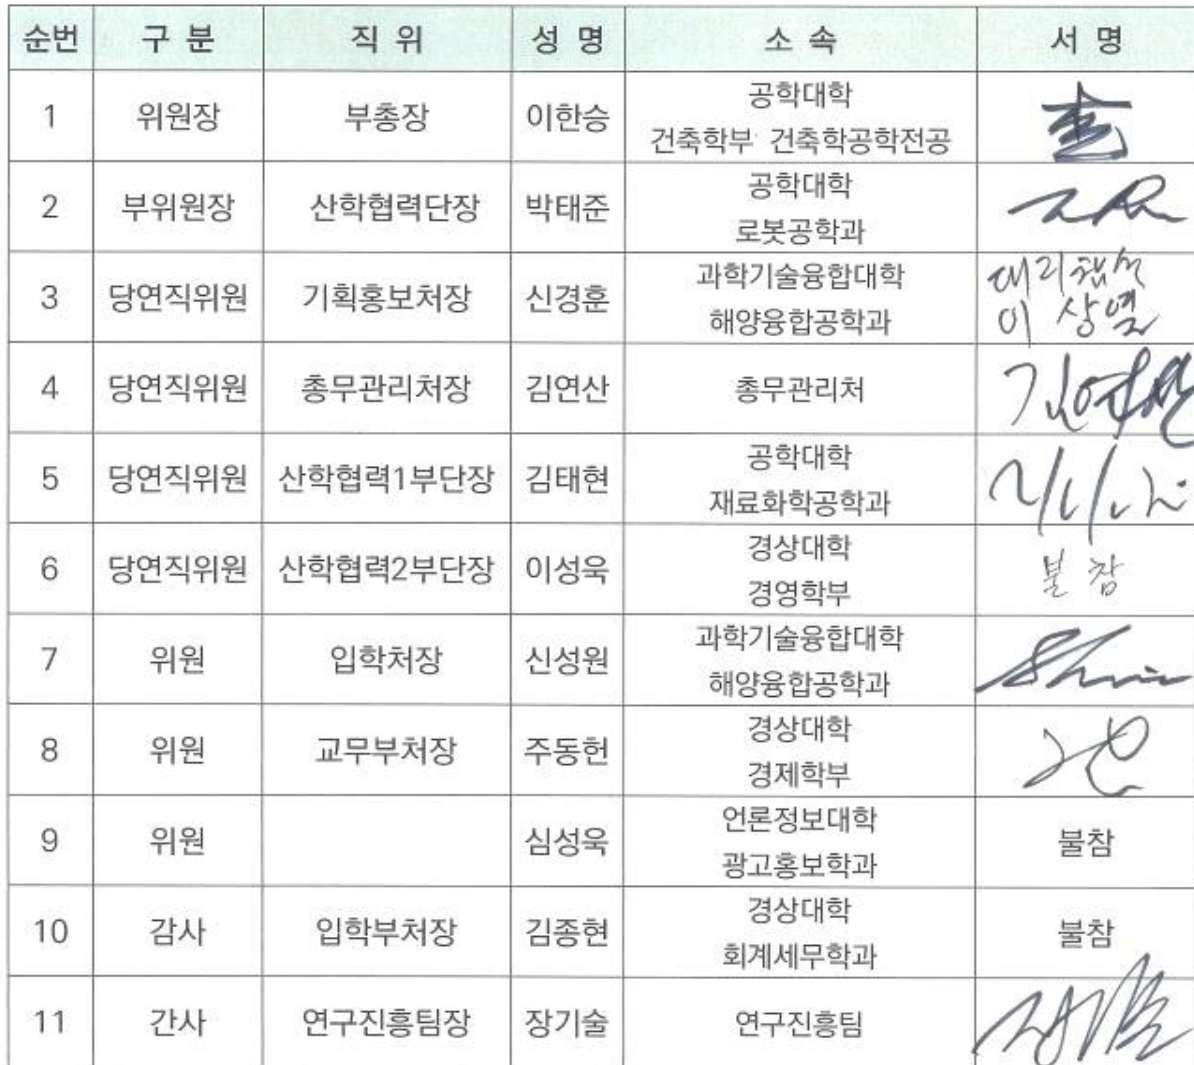 순번 구 분 직 위 성 명 소 속 서 명
1 위원장 부총장 이한승 공학대학
건축학부 건축학공학전공
2 부위원장 산학협력단장 박태준 공학대학
로봇공학과
3 당연직위원 기획홍보처장 신경훈 과학기술융합대학 대리참석
해양융합공학과 이상열
4 당연직위원 총무관리처장 김연산 총무관리처 김연산
5 당연직위원 산학협력1부단장 김태현 공학대학
재료화학공학과
6 당연직위원 산학협력2부단장 이성욱 경상대학 불참
경영학부
7 위원 입학처장 신성원 과학기술융합대학
해양융합공학과
8 위원 교무부처장 주동헌 경상대학
경제학부
9 위원 심성욱 언론정보대학 불참
광고홍보학과
10 감사 입학부처장 김종현 경상대학 불참
회계세무학과
11 간사 연구진흥팀장 장기술 연구진흥팀